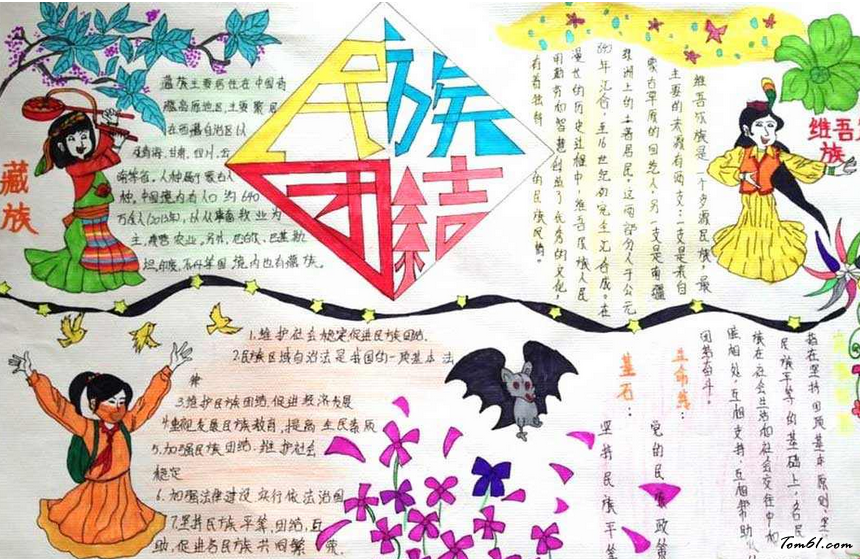 民族
团结
藏族
藏族主要居住在中国青
藏高原地区,主要聚居
在西藏自治区以
及青海、甘肃、四川、云
南等省。人种属于蒙古人
种。中国境内有人口约640
万余人(2013年),以从事畜牧业为
主,兼营农业。另外,尼泊尔、巴基斯
坦、印度、不丹等国境内也有藏族。
维吾尔族
维吾尔族是一个多源民族,最
主要的来源有两支:一支是来自
蒙古草原的回纥人,另一支是南疆
绿洲上的土著居民。这两部分人于公元
840年汇合,至16世纪初完全汇合成。在
漫长的历史过程中,维吾尔族人民
用勤劳和智慧创造了优秀的文化,
有着独特的民族风情。
1.维护社会稳定促进民族团结.
2.民族区域自治法是我国的一项基本法
律
3.维护民族团结,促进经济发展
4.重视发展民族教育,提高全民素质
5.加强民族团结.维护社会
稳定
6.加强法律建设实行依法治国
7.坚持民族平等,团结,互
助,促进各民族共同繁荣.
指在坚持四项基本原则、坚
民族平等的基础上,各民
族在社会生活和社会交往中和
睦相处、互相支持、互相帮助、
团结奋斗。
生命线:
党的民族政策
基石:
坚持民族平等
Tom61.com